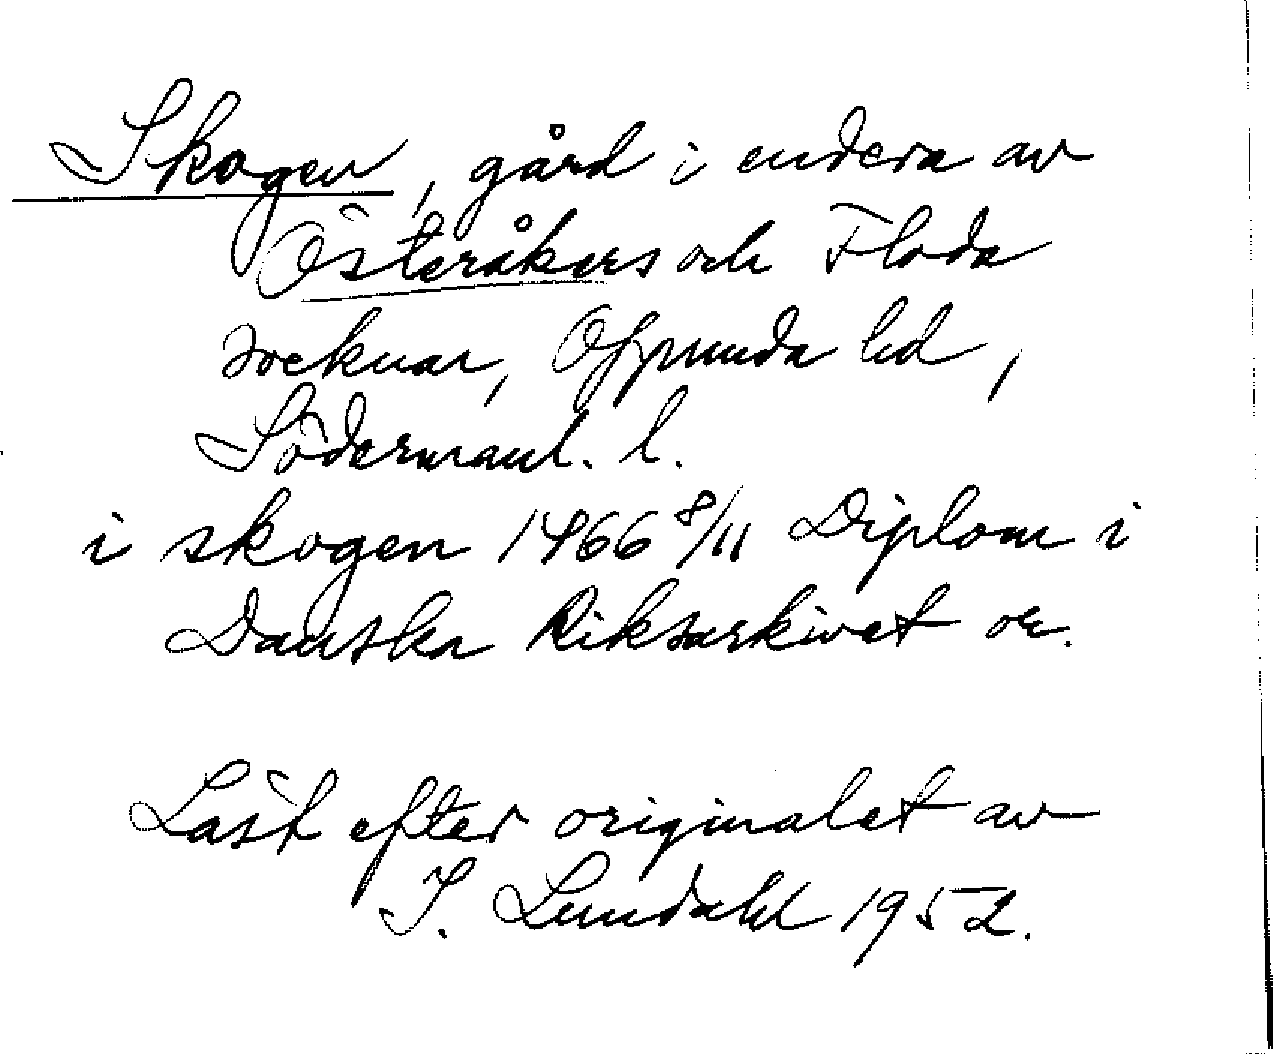 Skogen, gård i endera av
Österåkers och Floda
socknar, Oppunda hd,
Södermanl. l.
i skogen 1466 8/11 Diplom i
Danska Riksarkivet or.
Läst efter originalet av
I. Lundahl 1952.